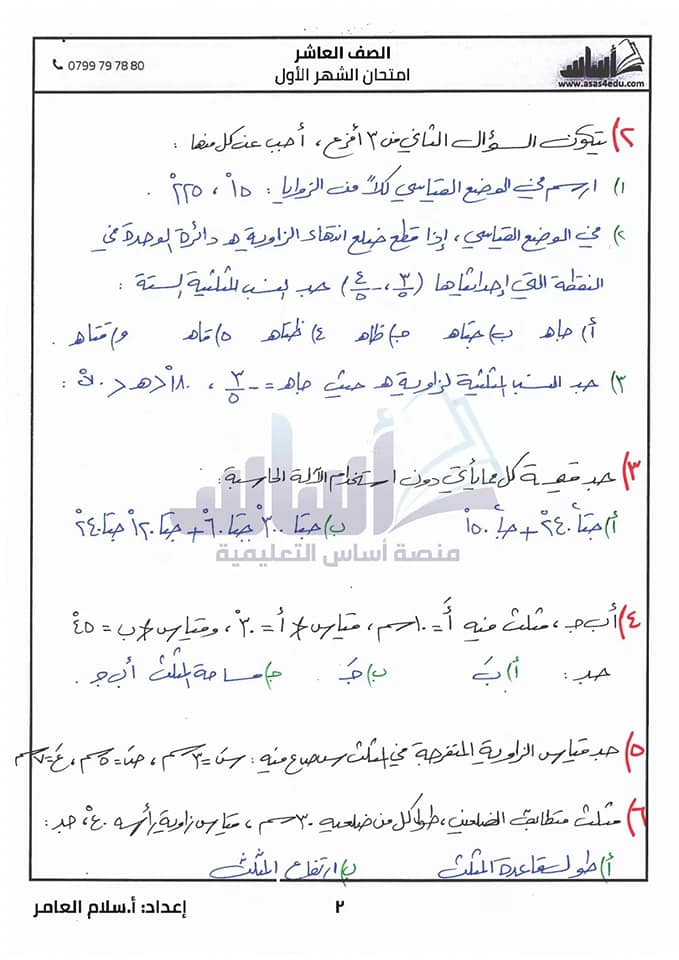 الصف العاشر
امتحان الشهر الأول
0799 79 78 80
أساس
www.asas4edu.com
٢) يتكون السؤال الثاني من ٣ أفرع ، أجب عن كل منها :
١) ارسم في الوضع القياسي كلاً من الزوايا : ١٥° ، ٢٢٥° .
٢) في الوضع القياسي ، إذا قطع ضلع انتهاء الزاوية هـ دائرة الوحدة في
النقطة التي إحداثياها (٣/٥ ، -٤/٥) جد النسب المثلثية الستة :
أ) جاهـ ب) جتاهـ جـ) ظاهـ ٤) ظتاهـ ٥) قاهـ و) قتاهـ .
٣) جد النسب المثلثية لزاوية هـ حيث جاهـ = -٣/٥ ، ١٨٠° < هـ <
٣) جد قيمة كل مما يأتي دون استخدام الآلة الحاسبة :
أ) جتا٢ ٢٤٠° + جا٢ ١٥٠° ب) جتا ٣٠٠° جتا ٦٠° + جتا ١٢٠° جتا ٢٤٠°
أساس
منصة أساس التعليمية
٤) أ ب جـ ، مثلث فيه أَ = ١٠ سم ، قياس ∢ أ = ٣٠° ، وقياس ∢ ب = ٤٥°
جد : أ) بَ ب) جـَ جـ) مساحة المثلث أ ب جـ .
٥) جد قياس الزاوية المنفرجة في المثلث س ص ع فيه : سَ = ٣ سم ، صَ = ٥ سم ، عَ = ٧ سم
٦) مثلث متطابق الضلعين ، طول كل من ضلعيه ٣٠ سم ، قياس زاوية رأسه ٤٠° ، جد :
أ) طول قاعدة المثلث ب) ارتفاع المثلث
إعداد: أ.سلام العامر
٢